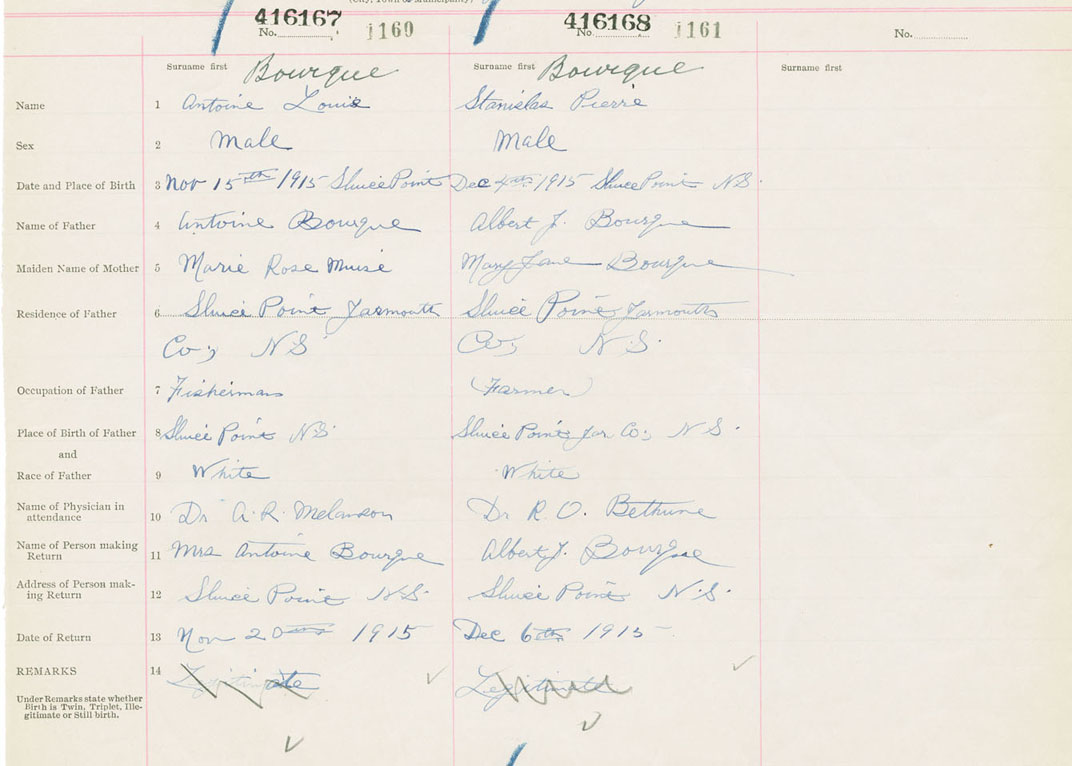 (City, Town or Municipality)
416167 416168
No. 1160 No. 1161 No.
Surname first Bourque Surname first Bourque Surname first
Name 1 Antoine Louis Stanislas Pierre
Sex 2 Male Male
Date and Place of Birth 3 Nov 15th 1915 Sluice Point Dec 4th 1915 Sluice Point N.S.
Name of Father 4 Antoine Bourque Albert J. Bourque
Maiden Name of Mother 5 Marie Rose Muise Mary Jane Bourque
Residence of Father 6 Sluice Point Yarmouth Sluice Point Yarmouth
Co; N S Co; N.S.
Occupation of Father 7 Fisherman (Farmer)
Place of Birth of Father 8 Sluice Point N.S. Sluice Point Yar Co; N S.
and
Race of Father 9 White White
Name of Physician in
attendance 10 Dr A.R. Melanson Dr R. O. Bethune
Name of Person making
Return 11 Mrs Antoine Bourque Albert J. Bourque
Address of Person mak-
ing Return 12 Sluice Point N.S. Sluice Point N.S.
Date of Return 13 Nov 20th 1915 Dec 6th 1915
REMARKS 14 Legitimate Legitimate
Under Remarks state whether
Birth is Twin, Triplet, Ille-
gitimate or Still birth.